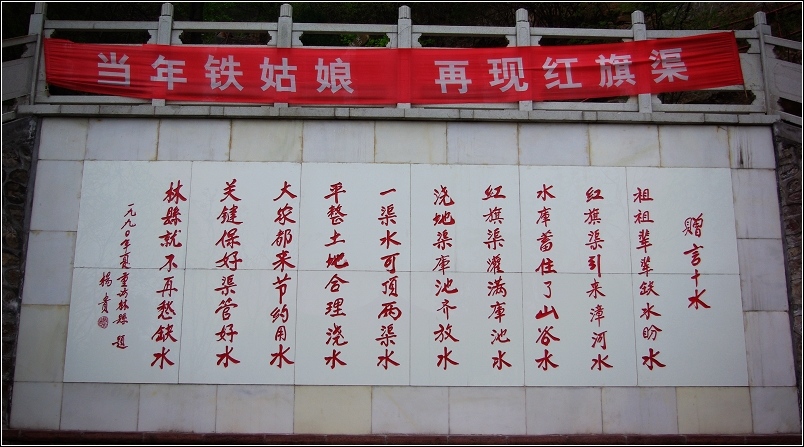 当年铁姑娘 再现红旗渠
赠言十水
祖祖辈辈缺水盼水
红旗渠引来漳河水
水库蓄住了山谷水
红旗渠灌满库池水
浇地渠库池齐放水
一渠水可顶两渠水
平整土地合理浇水
大家都来节约用水
关键保好渠管好水
林县就不再愁缺水
一九九〇年夏重访林县 题
杨贵